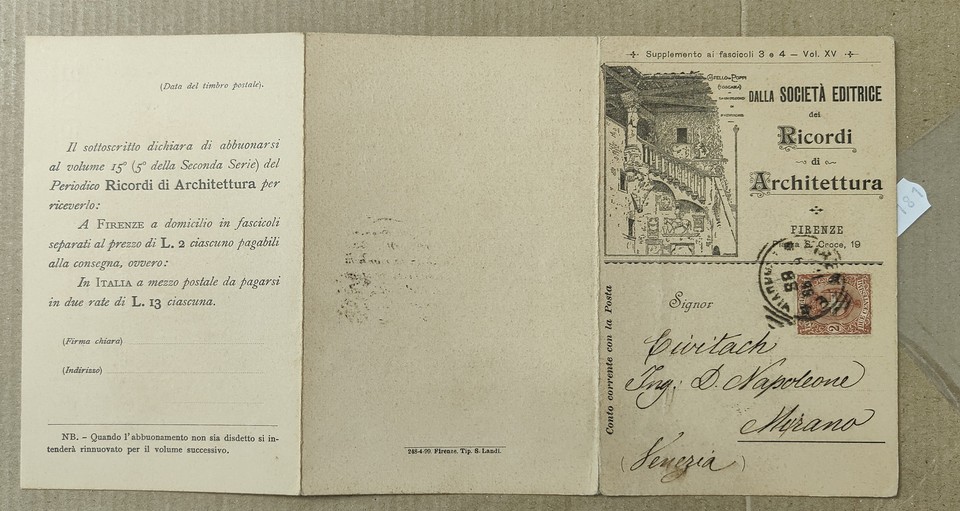 (Data del timbro postale).
Il sottoscritto dichiara di abbuonarsi
al volume 15° (5° della Seconda Serie) del
Periodico Ricordi di Architettura per
riceverlo:
A FIRENZE a domicilio in fascicoli
separati al prezzo di L. 2 ciascuno pagabili
alla consegna, ovvero:
In ITALIA a mezzo postale da pagarsi
in due rate di L. 13 ciascuna.
(Firma chiara)
(Indirizzo)
NB. - Quando l'abbuonamento non sia disdetto si in-
tenderà rinnuovato per il volume successivo.
248-4-99. Firenze, Tip. S. Landi.
Supplemento ai fascicoli 3 e 4 — Vol. XV
DALLA SOCIETÀ EDITRICE
dei
Ricordi
di
Architettura
FIRENZE
Piazza S. Croce, 19
Conto corrente con la Posta
Signor
Civitach
Ing: D. Napoleone
Mirano
(Venezia)
181